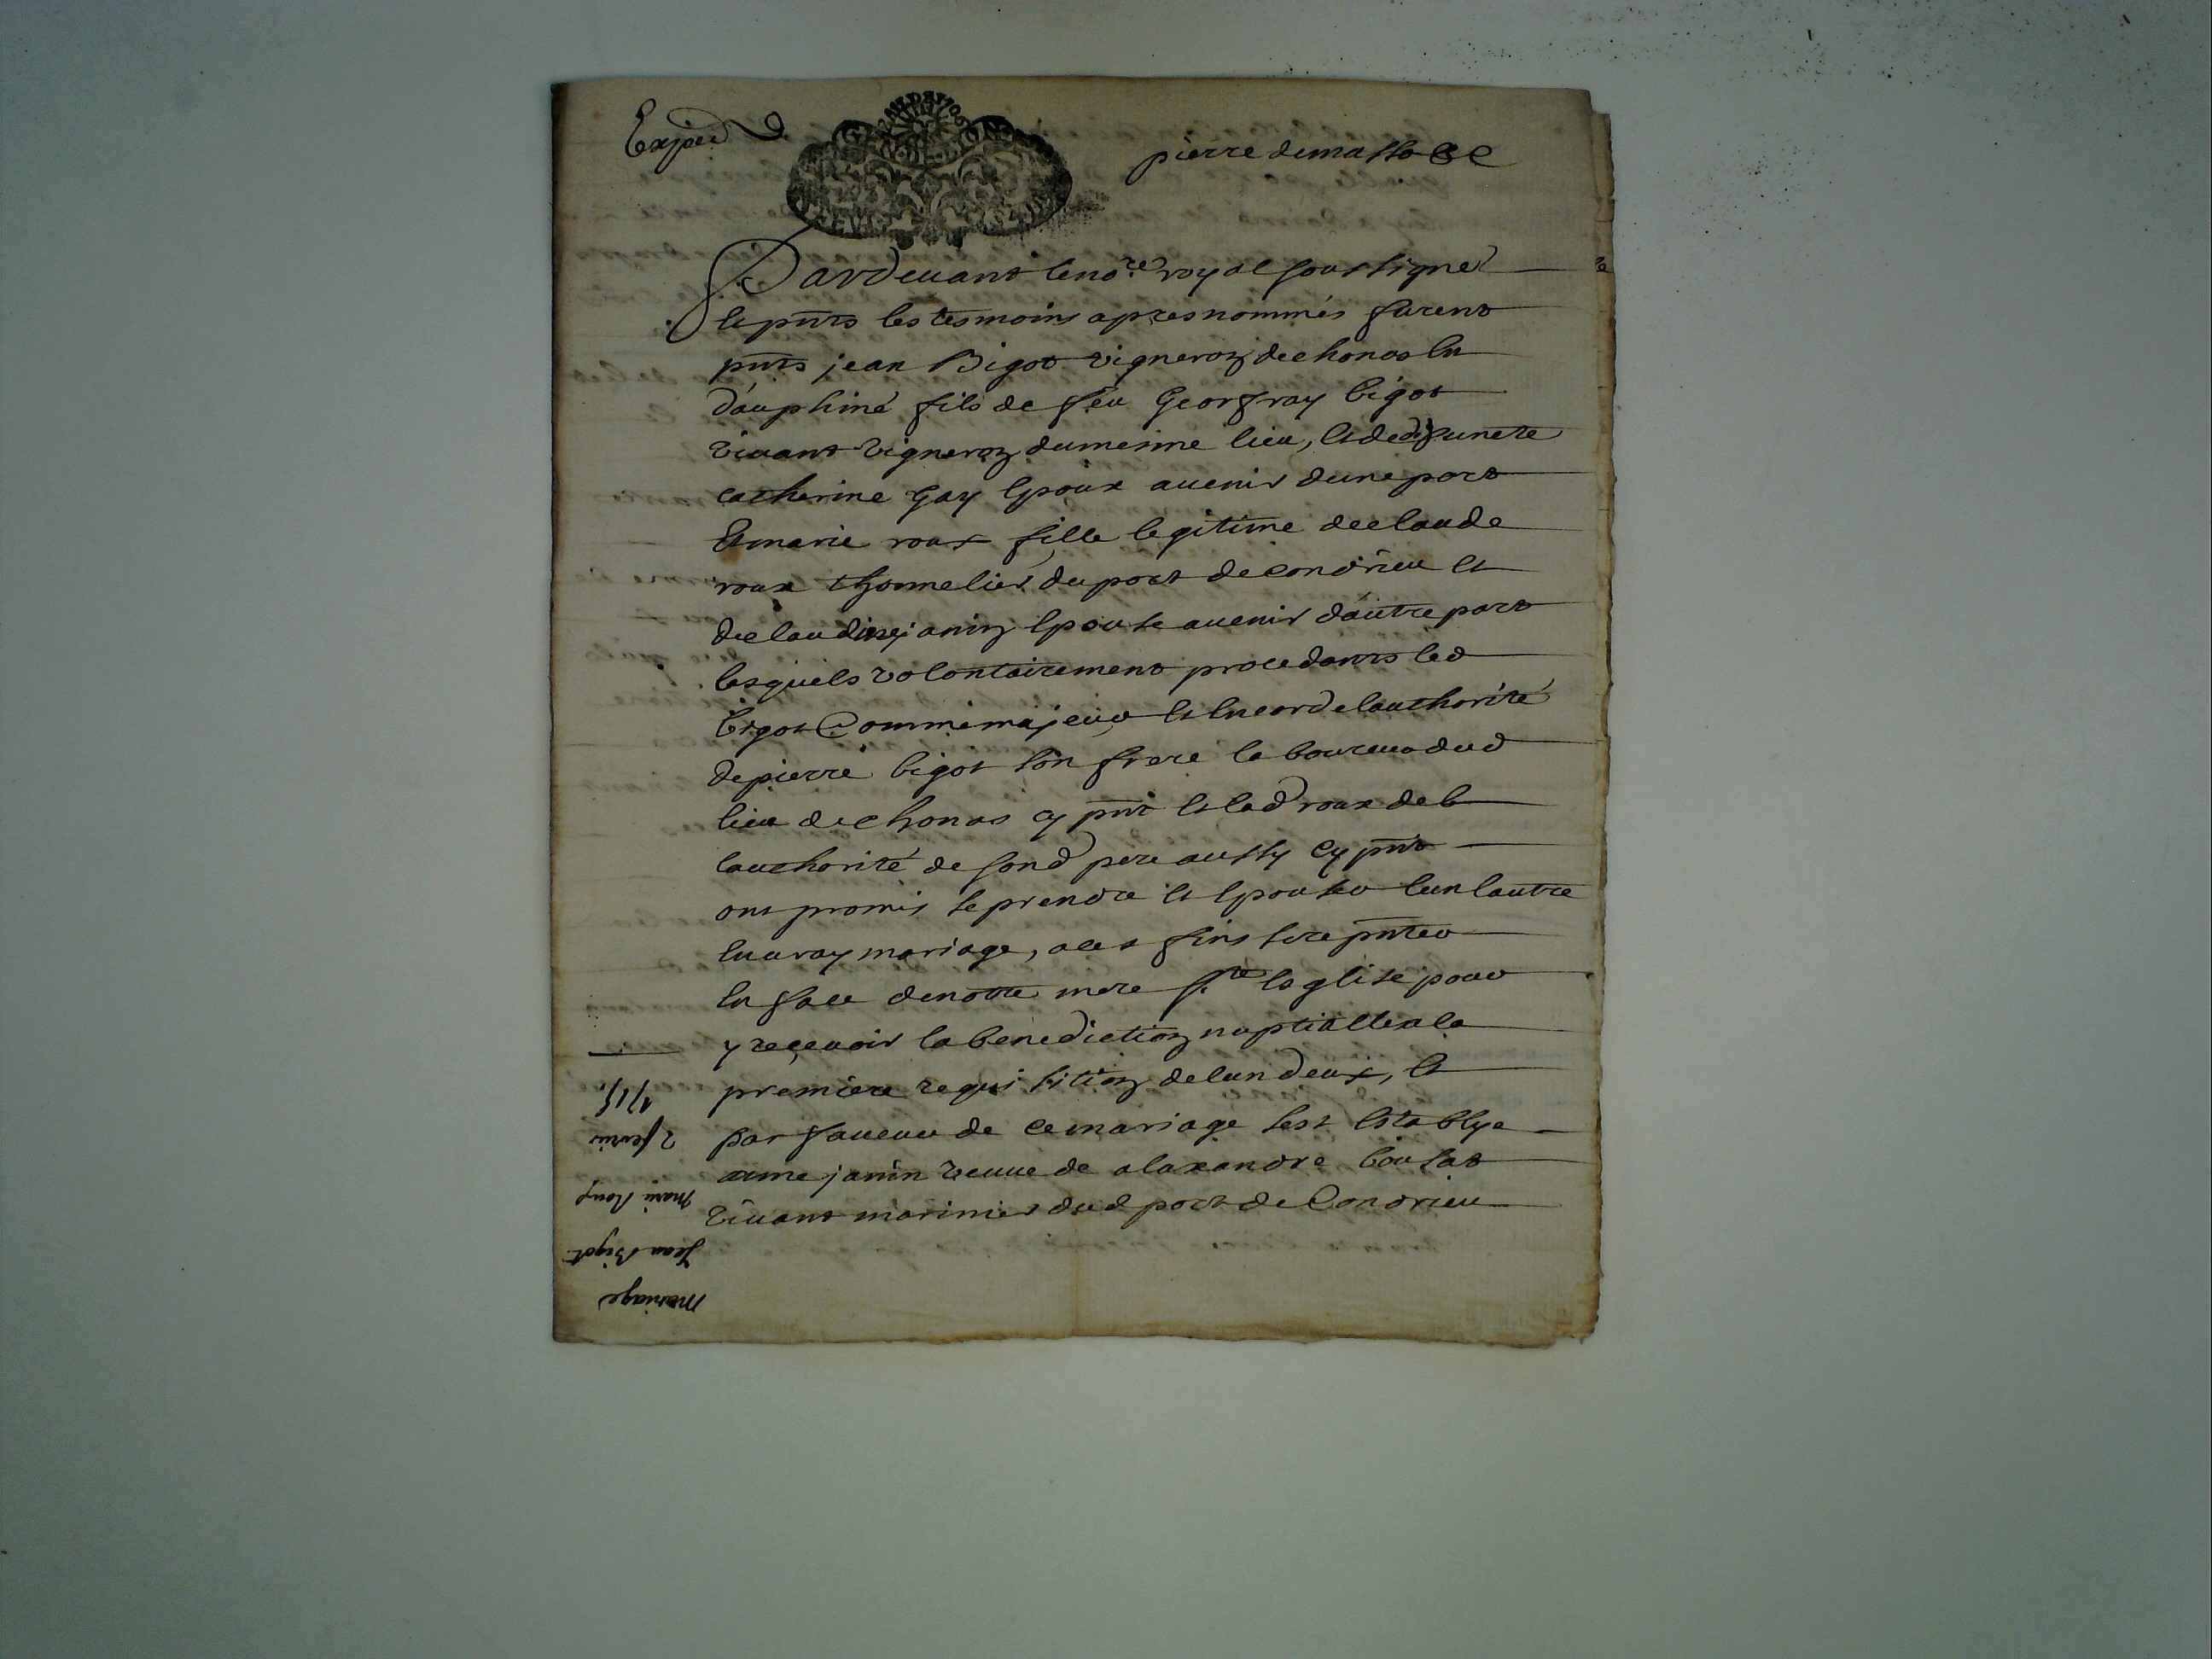 Exped
pierre dumas
Pardeuant le no.re royal soussigné
et pnts les tesmoins apres nommés furent
pnts jean Bigot vigneron de chonas en
dauphiné fils de feu Georfray bigot
viuant vigneron du mesme lieu, et de deffuncte
catherine Gay Epoux auenir dune part
Et marie roux fille legitime de claude
roux thonnelier du port de condrieu et
de claudine janin Epouse auenir d'autre part
lesquels volontairement procedants led
bigot Comme majeur et encor de lauthorité
de pierre bigot son frere laboureur dud
lieu de chonas cy pnt et lad roux de l
lauthorité de sond pere aussy cy pnt
ont promis se prendre et Epouser l'un l'autre
en uray mariage, a ces fins se repnter
en face de notre mere ste leglise pour
y recevoir la benediction nuptialle a la
premiere requisition de lun deux, et
par faueur de ce mariage sest Establye
anne janin veuue de alaxandre
viuant marinier dud port de Condrieu
Mariage
Jean Bigot
Marie Roux
2 feurier
1715